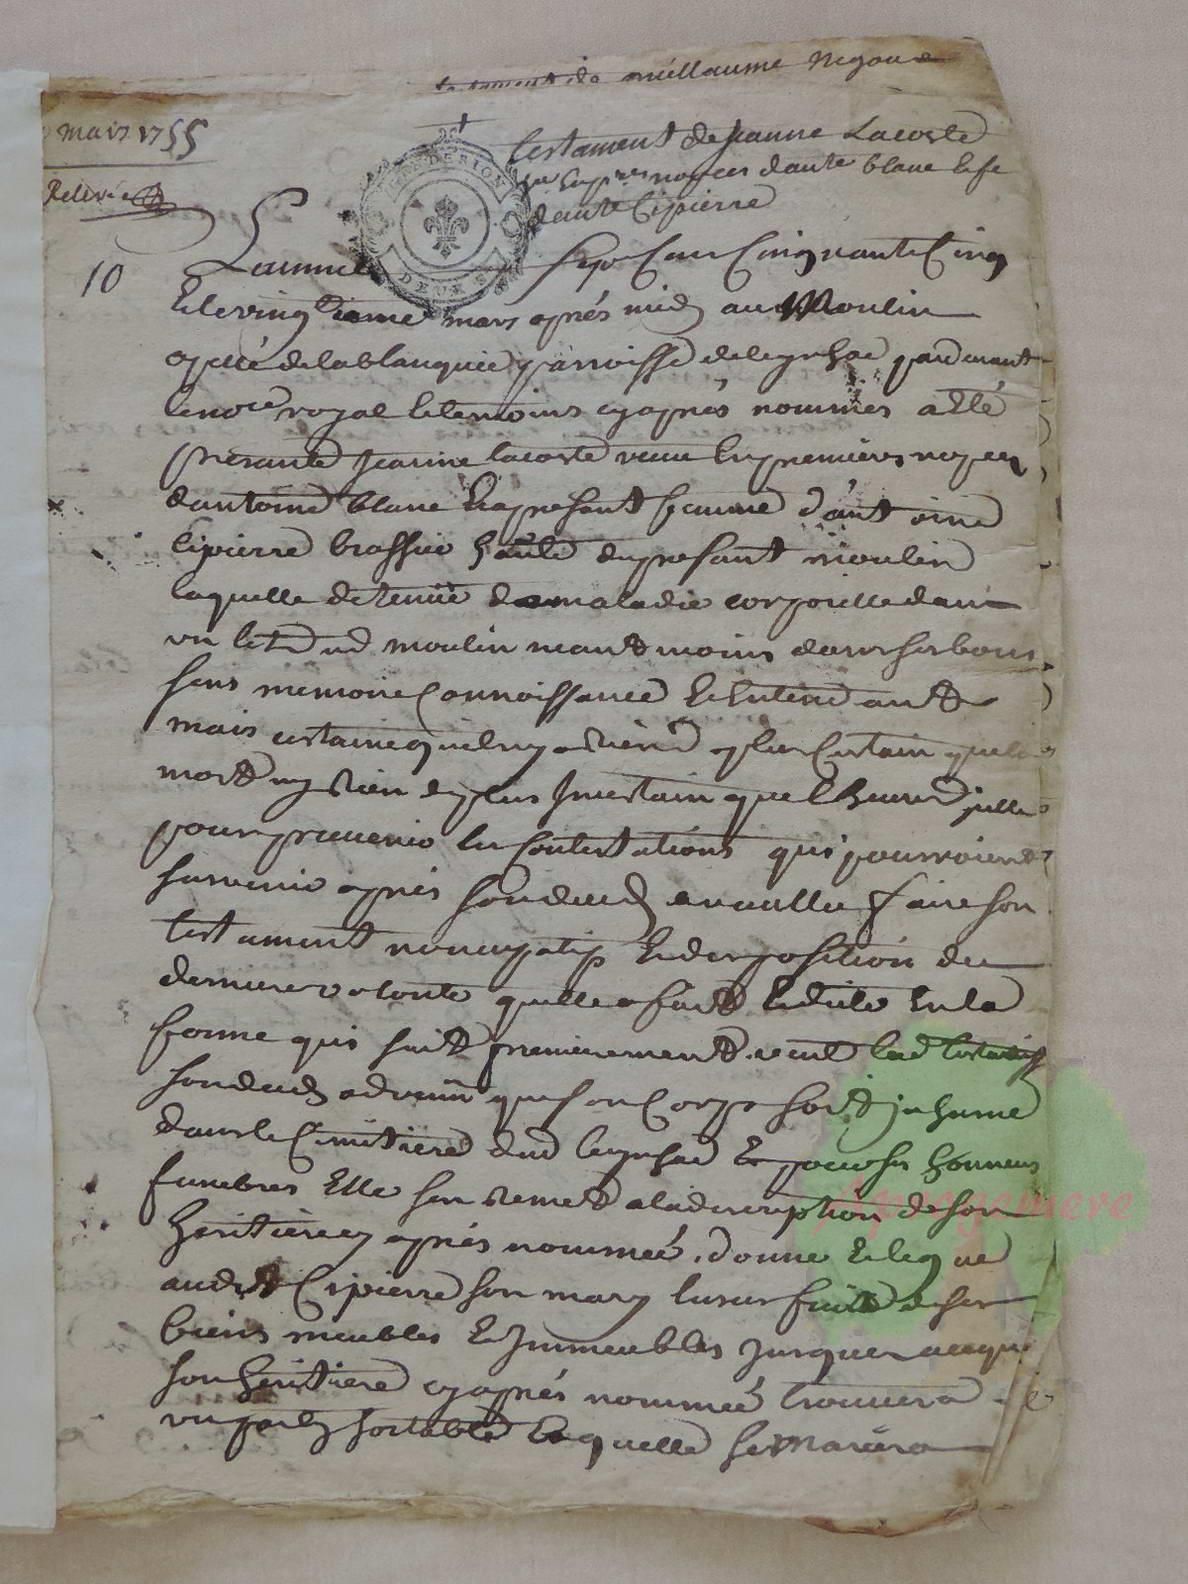 testament de Guillaume Negou
mars 1755
Relevée
testament de Jeanne Lacoste
en 1res noces d'ante blanc et fe
d'ante Cipierre
10
GEN DE RION
DEUX S
L'an mil sept cens cinquante cinq
et le vingtieme mars aprés midy au Moulin
apellé de la blanquie parroisse de leynhac pardevant
le nore royal et temoins cy aprés nommés a été
presante Jeanne lacoste veuve en premières noces
d'antoine blanc et apresant femme d'antoine
Cipierre brassier hante du presant moulin
laquelle detenüe de maladie corporelle dans
un lit aud moulin neantmoins dans ses bons
sens memoire connoissance et entendant
mais certaine quil ny a rien de plus certain que la
mort ny rien de plus Incertain que lheure jcelle
pour prevenir les contestations qui pourroient
survenir aprés son deces a voullu faire son
testament noncupatif et disposition de
derniere volonté quelle a fait et dicté en la
forme qui suit premierement veut lad testatrisse
son deces advenu que son corps soit jnhumé
dans le Cimitiere dud leynhac et pour ses honneurs
funebres Elle sen remet a la discreption de son
heritiere cy aprés nommeé, donne et legue
audit Cipierre son mary lusufruit de ses
biens meubles et Immeubles jusques aceque
son heritiere cy aprés nommeé trouvera
un party sortable laquelle se mariera
Arvegenere